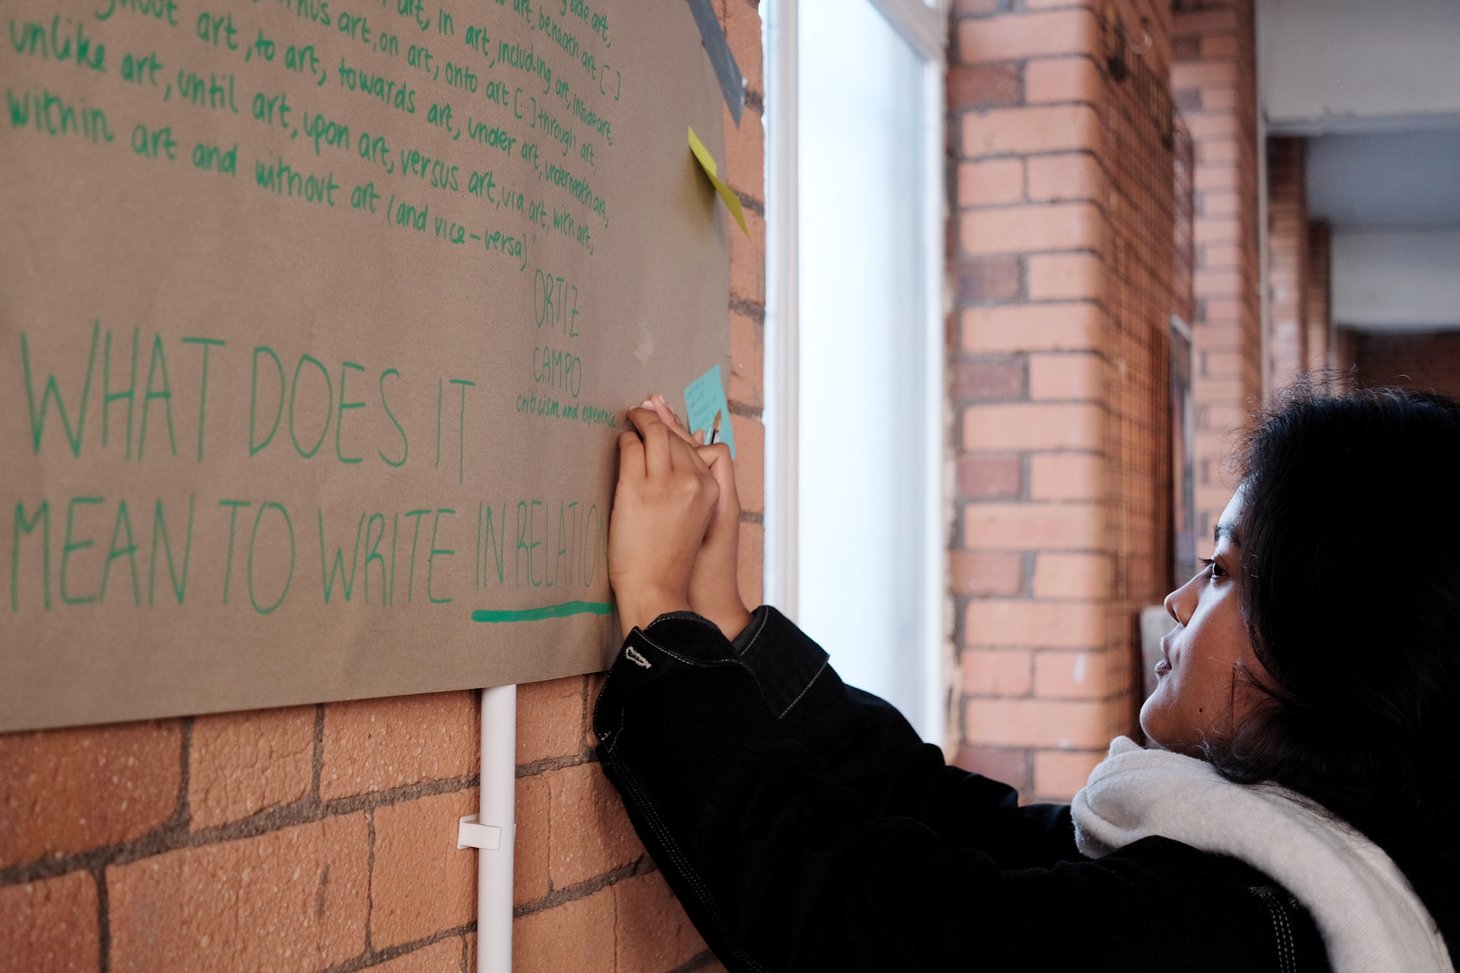 art, beneath art [..]
art, in art, including art, inside art,
unlike art, to art, towards art, under art, underneath art,
art, on art, onto art [..] through art,
until art, upon art, versus art, via art, with art,
within art and without art (and vice-versa).
ORTIZ
CAMPO
criticism and experience
WHAT DOES IT
MEAN TO WRITE IN RELATION